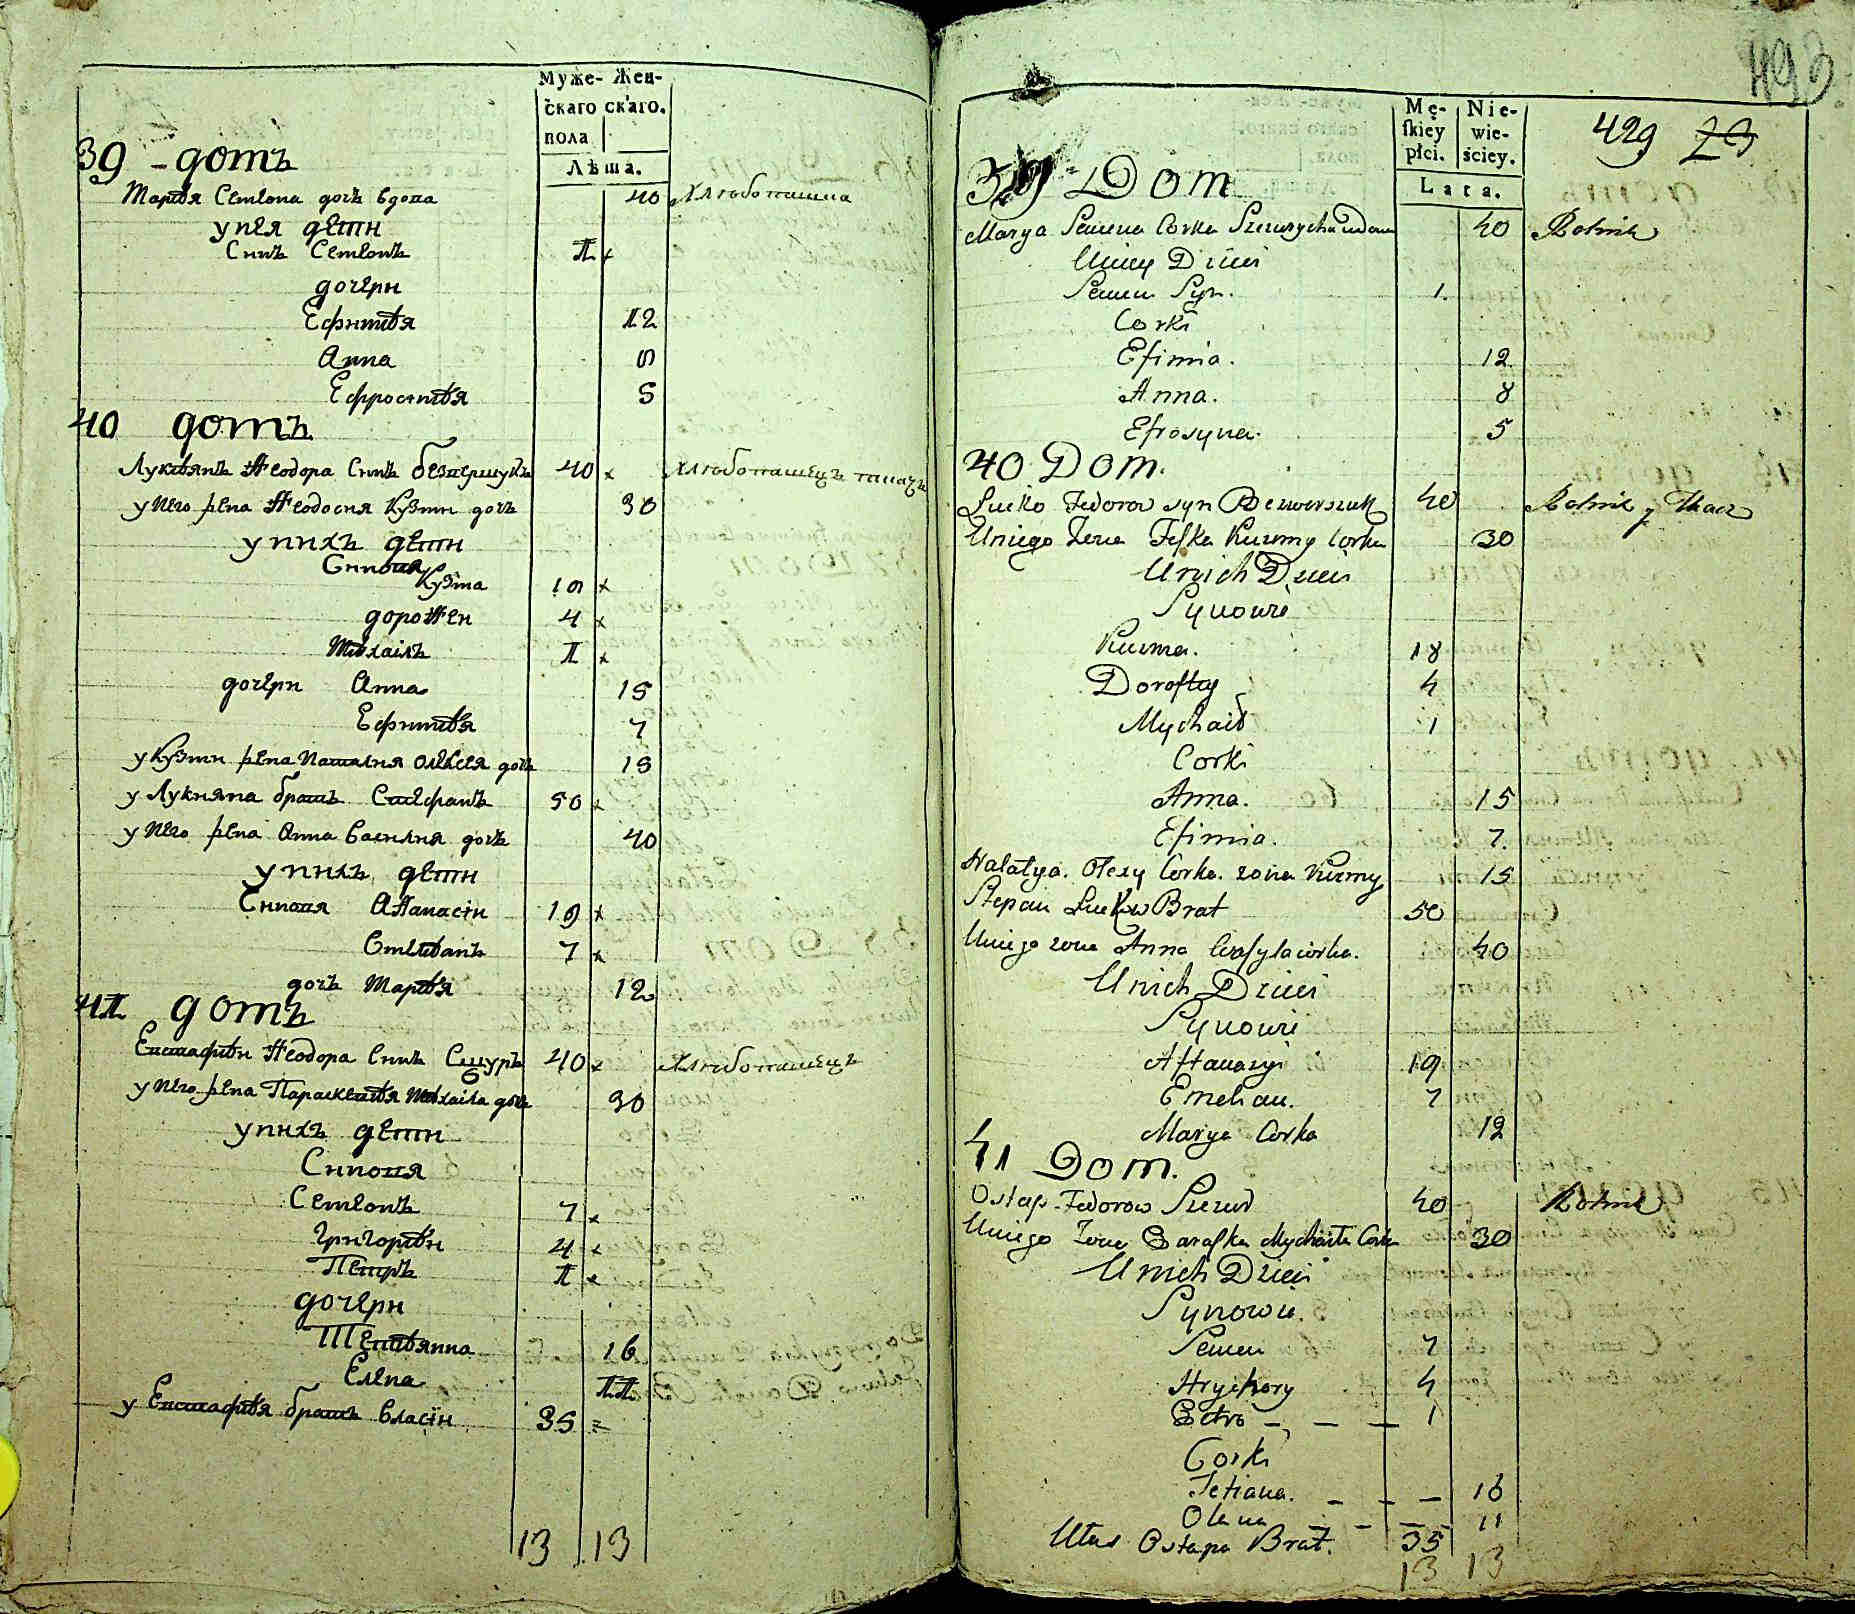 Муже- Жен-
скаго скаго.
пола
Лѣта.
39 - домъ
Марія Семіона дочь вдова 40 Хлѣбопашица
у нея дѣти
Синъ Семіонъ 1
дочери
Ефимія 12
Анна 8
Ефросинія 5
40 домъ
Лукіянъ Ѳеодора Синъ 40 Хлѣбопашецъ ткачъ
у него жена Ѳеодосия Кузми дочь 30
у нихъ дети
Синовя
Кузма 18
Дороѳеи 4
Михаілъ 1
дочери Анна 15
Ефимія 7
у Кузми жена Наталия Олексея дочь 15
у Лукияна братъ Стефанъ 50
у него жена Анна Василия дочь 40
у нихъ дети
Синовя Аѳанасій 19
Емиліанъ 7
дочь Марія 12
41 домъ
Евстафій Ѳеодора Синъ Смуръ 40 Хлѣбопашецъ
у него жена Параскевія Михаіла дочь 30
у нихъ дети
Синовя
Семіонъ 7
Григорій 4
Петръ 1
дочери
Тетіянна 16
Елена 11
у Евстафія братъ Власій 35
13 13
493
Mę- Nie-
ſkiey wie-
płci. ściey.
Lata.
429
39 Dom
Marya Semena Corka wdowa 40 Rolnik
Uniey Dzieci
Semen Syn. 1.
Corki
Efimia. 12
Anna. 8
Efrosyna. 5
40 Dom.
Lucko Fedorow syn 40 Rolnik y Tkacz
Uniego Zona Feſka Kuzmy Corka 30
Unich Dzieci
Synowie
Kuzma. 18
Doroftey 4
Mychaił 1
Corki
Anna. 15
Efimia. 7.
Natalya. Olexy Corka. zona Kuzmy 15
Stepan Luckow Brat 50
Uniego zona Anna Wasyla corka. 40
Unich Dzieci
Synowie
Aftanazyi 19
Emelian. 7
Marya Corka 12
41 Dom.
Ostap Fedorow 40 Rolnik
Uniego Zona Paraſka Mychaiła Corka 30
Unich Dzieci
Synowie.
Semen 7
Hryhory 4
Petro - - - 1
Corki
Tetiana. - - - 16
Olena - - - 11
Ułas Ostapa Brat. 35
13 13